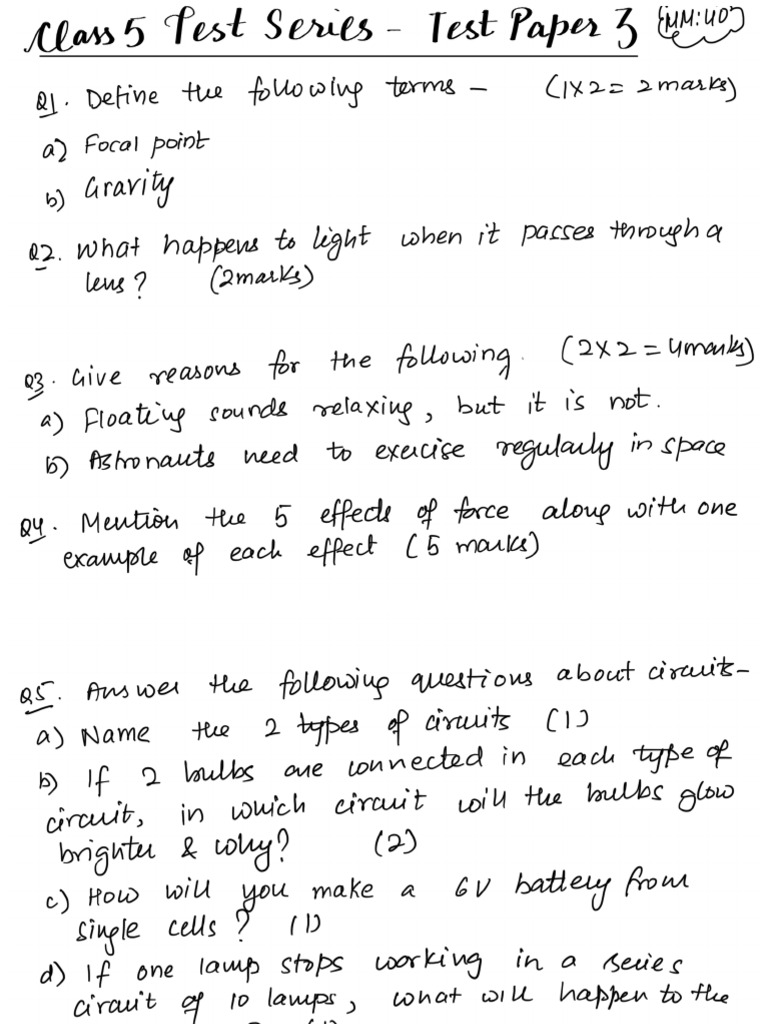 Class 5 Test Series - Test Paper 3 {MM:40}
Q1. Define the following terms - (1x2 = 2 marks)
a) Focal point
b) Gravity
Q2. What happens to light when it passes through a
lens? (2 marks)
Q3. Give reasons for the following. (2x2 = 4 marks)
a) Floating sounds relaxing, but it is not.
b) Astronauts need to exercise regularly in space
Q4. Mention the 5 effects of force along with one
example of each effect (5 marks)
Q5. Answer the following questions about circuits-
a) Name the 2 types of circuits (1)
b) If 2 bulbs are connected in each type of
circuit, in which circuit will the bulbs glow
brighter & why? (2)
c) How will you make a 6V battery from
single cells? (1)
d) If one lamp stops working in a series
circuit of 10 lamps, what will happen to the